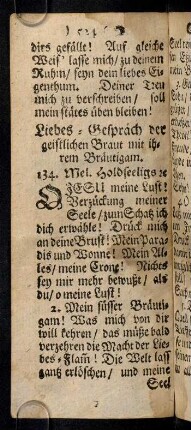 dirs gefälle! Auf gleiche
Weis' lasse mich/ zu deinem
Ruhm/ seyn dein liebes Ei-
genthum. Deiner Treu
mich zu verschreiben/ soll
mein stätes üben bleiben!
Liebes-Gespräch der
geistlichen Braut mit ih-
rem Bräutigam.
134. Mel. Holdseeligs
O JESU meine Lust!
Verzückung meiner
Seele/ zum Schatz ich
dich erwähle! Drück mich
an deine Brust! Mein Para-
dis und Wonne! Mein Al-
les/ meine Crone! Nichts
sey mir mehr bewußt/ als
du/ o meine Lust!
2. Mein süsser Bräuti-
gam! Was mich von dir
will kehren/ das müße bald
verzehren die Macht der Lie-
bes-Flam! Die Welt lass
gantz erlöschen/ und meine
Seel